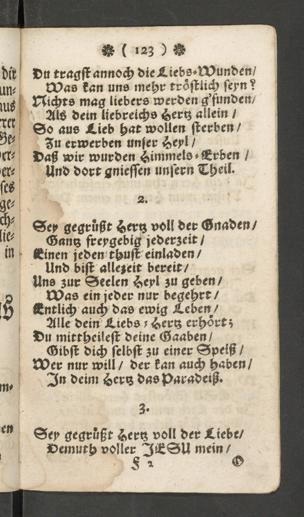 ❋ ( 123 ) ❋
Du tragst annoch die Liebs-Wunden/
Was kan uns mehr tröstlich seyn?
Nichts mag liebers werden g'funden/
Als dein liebreichs Hertz allein/
So aus Lieb hat wollen sterben/
Zu erwerben unser Heyl/
Daß wir wurden Himmels-Erben/
Und dort gniessen unsern Theil.
2.
Sey gegrüßt Hertz voll der Gnaden/
Gantz freygebig jederzeit/
Einen jeden thust einladen/
Und bist allezeit bereit/
Uns zur Seelen Heyl zu geben/
Was ein jeder nur begehrt/
Entlich auch das ewig Leben/
Alle dein Liebs-Hertz erhört;
Du mittheilest deine Gaaben/
Gibst dich selbst zu einer Speiß/
Wer nur will/ der kan auch haben/
In deim Hertz das Paradeiß.
3.
Sey gegrüßt Hertz voll der Liebe/
Demuth voller JESU mein/
F 2